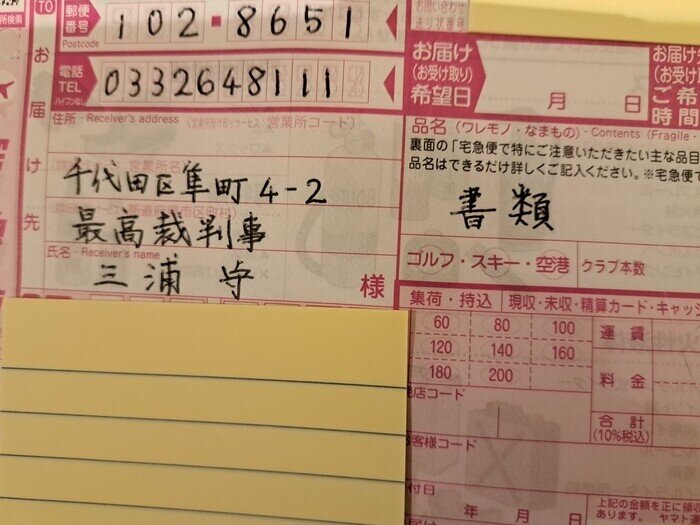 TO
お届け先
郵便番号
Postcode
102-8651
電話
TEL
ハイフンなし
0332648111
住所・Receiver's address (営業所受け取りサービス 営業所コード)
営業所名
千代田区隼町4-2
最高裁判事
氏名・Receiver's name
三浦 守
様
お問い合わせ
送り状番号
お届け
(お受け取り)
希望日
月 日
お届け
(お受け取り)
ご希
時間
品名(ワレモノ・なまもの)・Contents (Fragile・
裏面の「宅急便で特にご注意いただきたい主な品目
品名はできるだけ詳しくご記入ください。※宅急便で
書類
ゴルフ・スキー・空港
クラブ本数
集荷・持込
現収・未収・精算カード・キャッシ
60 80 100
120 140 160
180 200
運賃
料金
合計
(10%税込)
店コード
客様コード
付日
年 月 日
上記の金額を正に領
あります。 ヤマト運